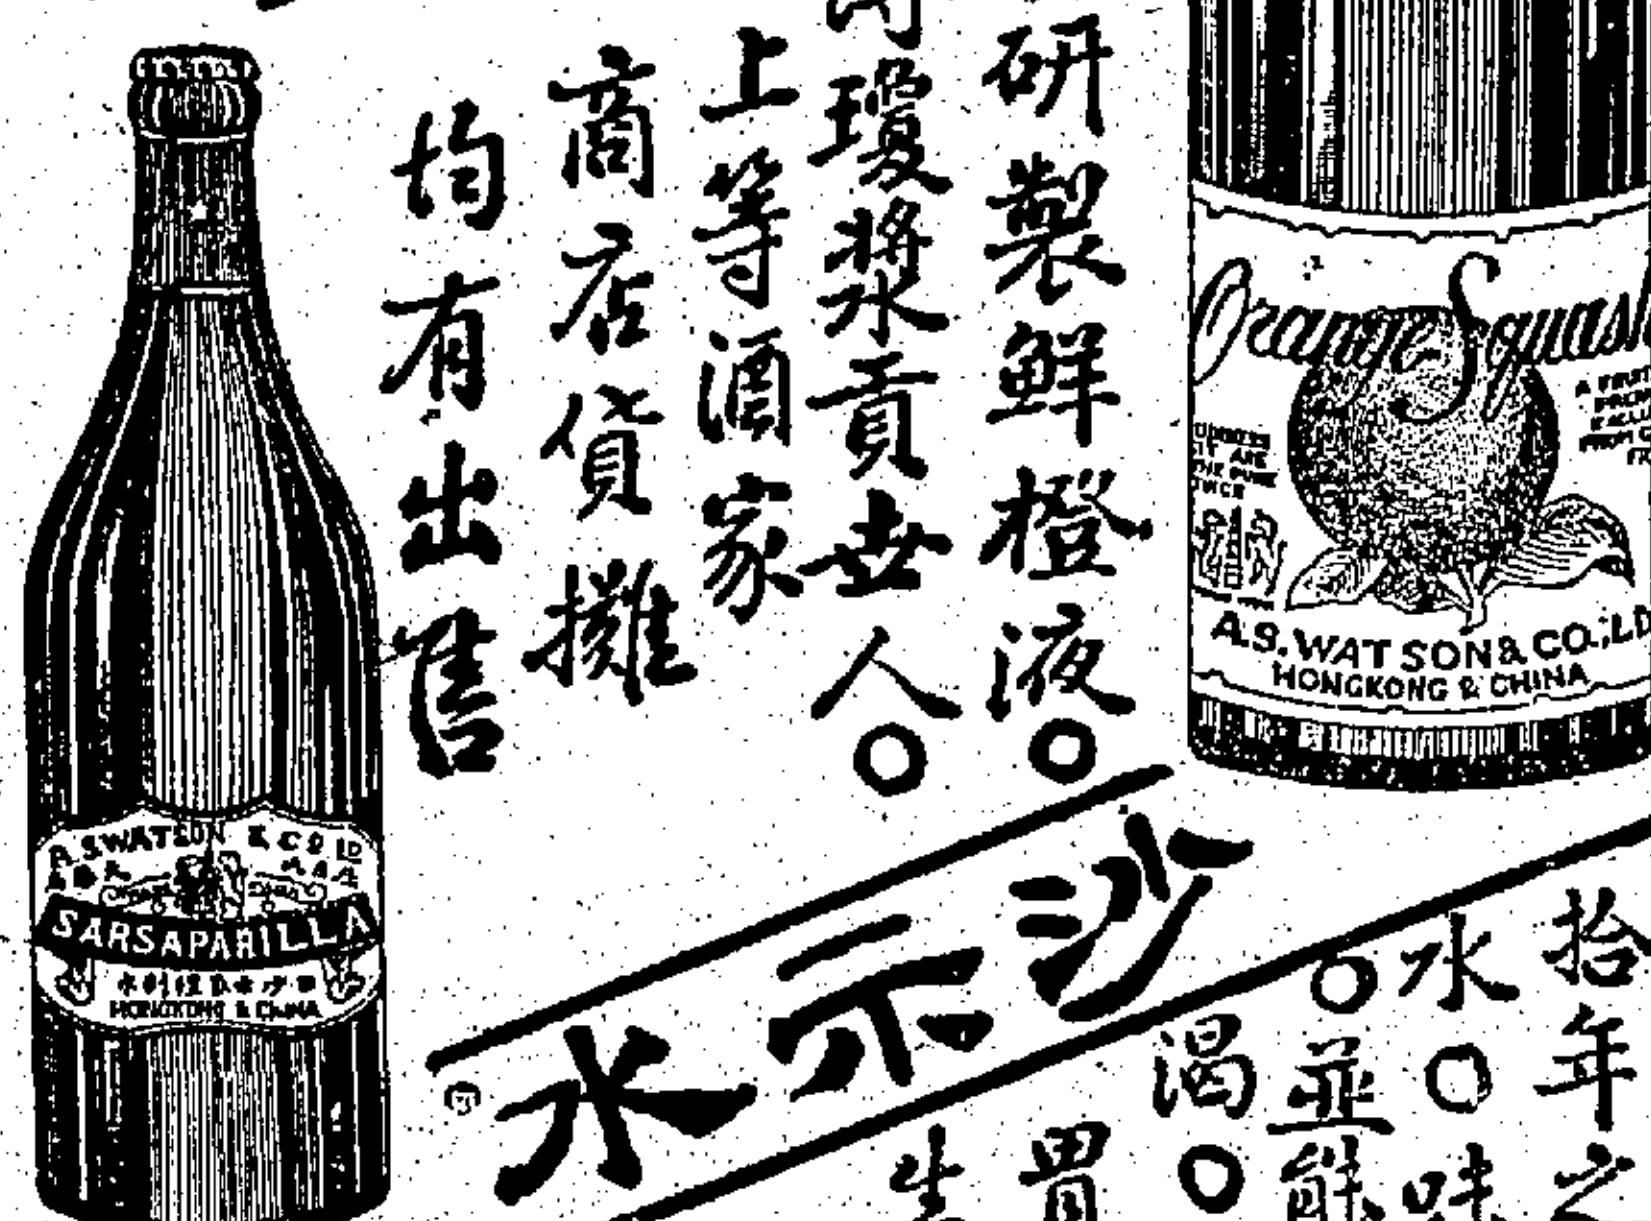 研製鮮橙液○
瓊漿貢世人○
上等酒家
商店貨攤
均有出售
Orange Squash
A.S. WATSON & CO.; LD
HONGKONG & CHINA
沙示水
A.S. WATSON & CO LD
SARSAPARILLA
HONGKONG & CHINA
拾年之
水○味
○並能
渴○
胃
生